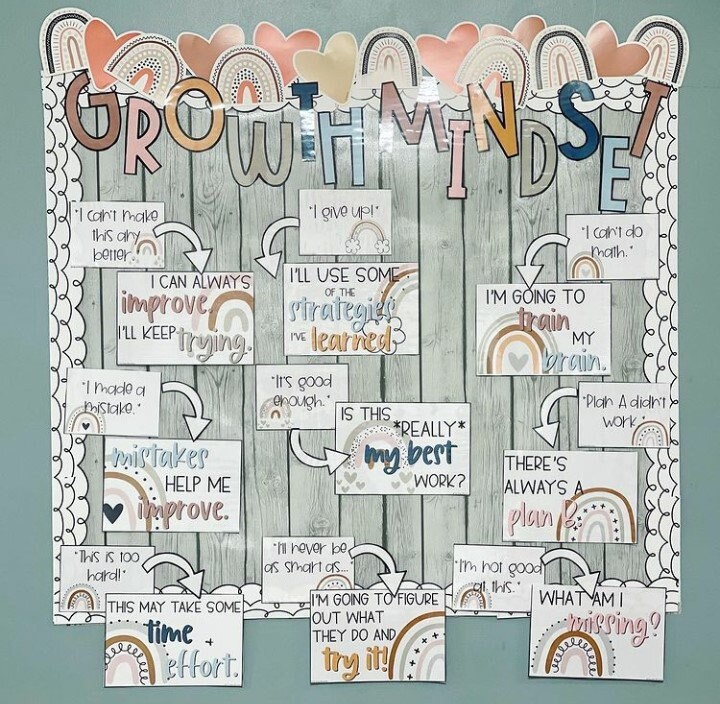 GROWTH MINDSET
"I can't make
this any
better."
I CAN ALWAYS
improve.
I'LL KEEP trying.
"I give up!"
I'LL USE SOME
OF THE
strategies
I'VE learned
"I can't do
math."
I'M GOING TO
train
MY
brain.
"I made a
mistake."
mistakes
HELP ME
improve.
"It's good
enough."
IS THIS
*REALLY*
my best
WORK?
"Plan A didn't
work."
THERE'S
ALWAYS A
plan B.
"This is too
hard!"
THIS MAY TAKE SOME
time +
effort.
"I'll never be
as smart as..."
I'M GOING TO FIGURE
OUT WHAT
THEY DO AND
try it!
"I'm not good
at this."
WHAT AM I
missing?